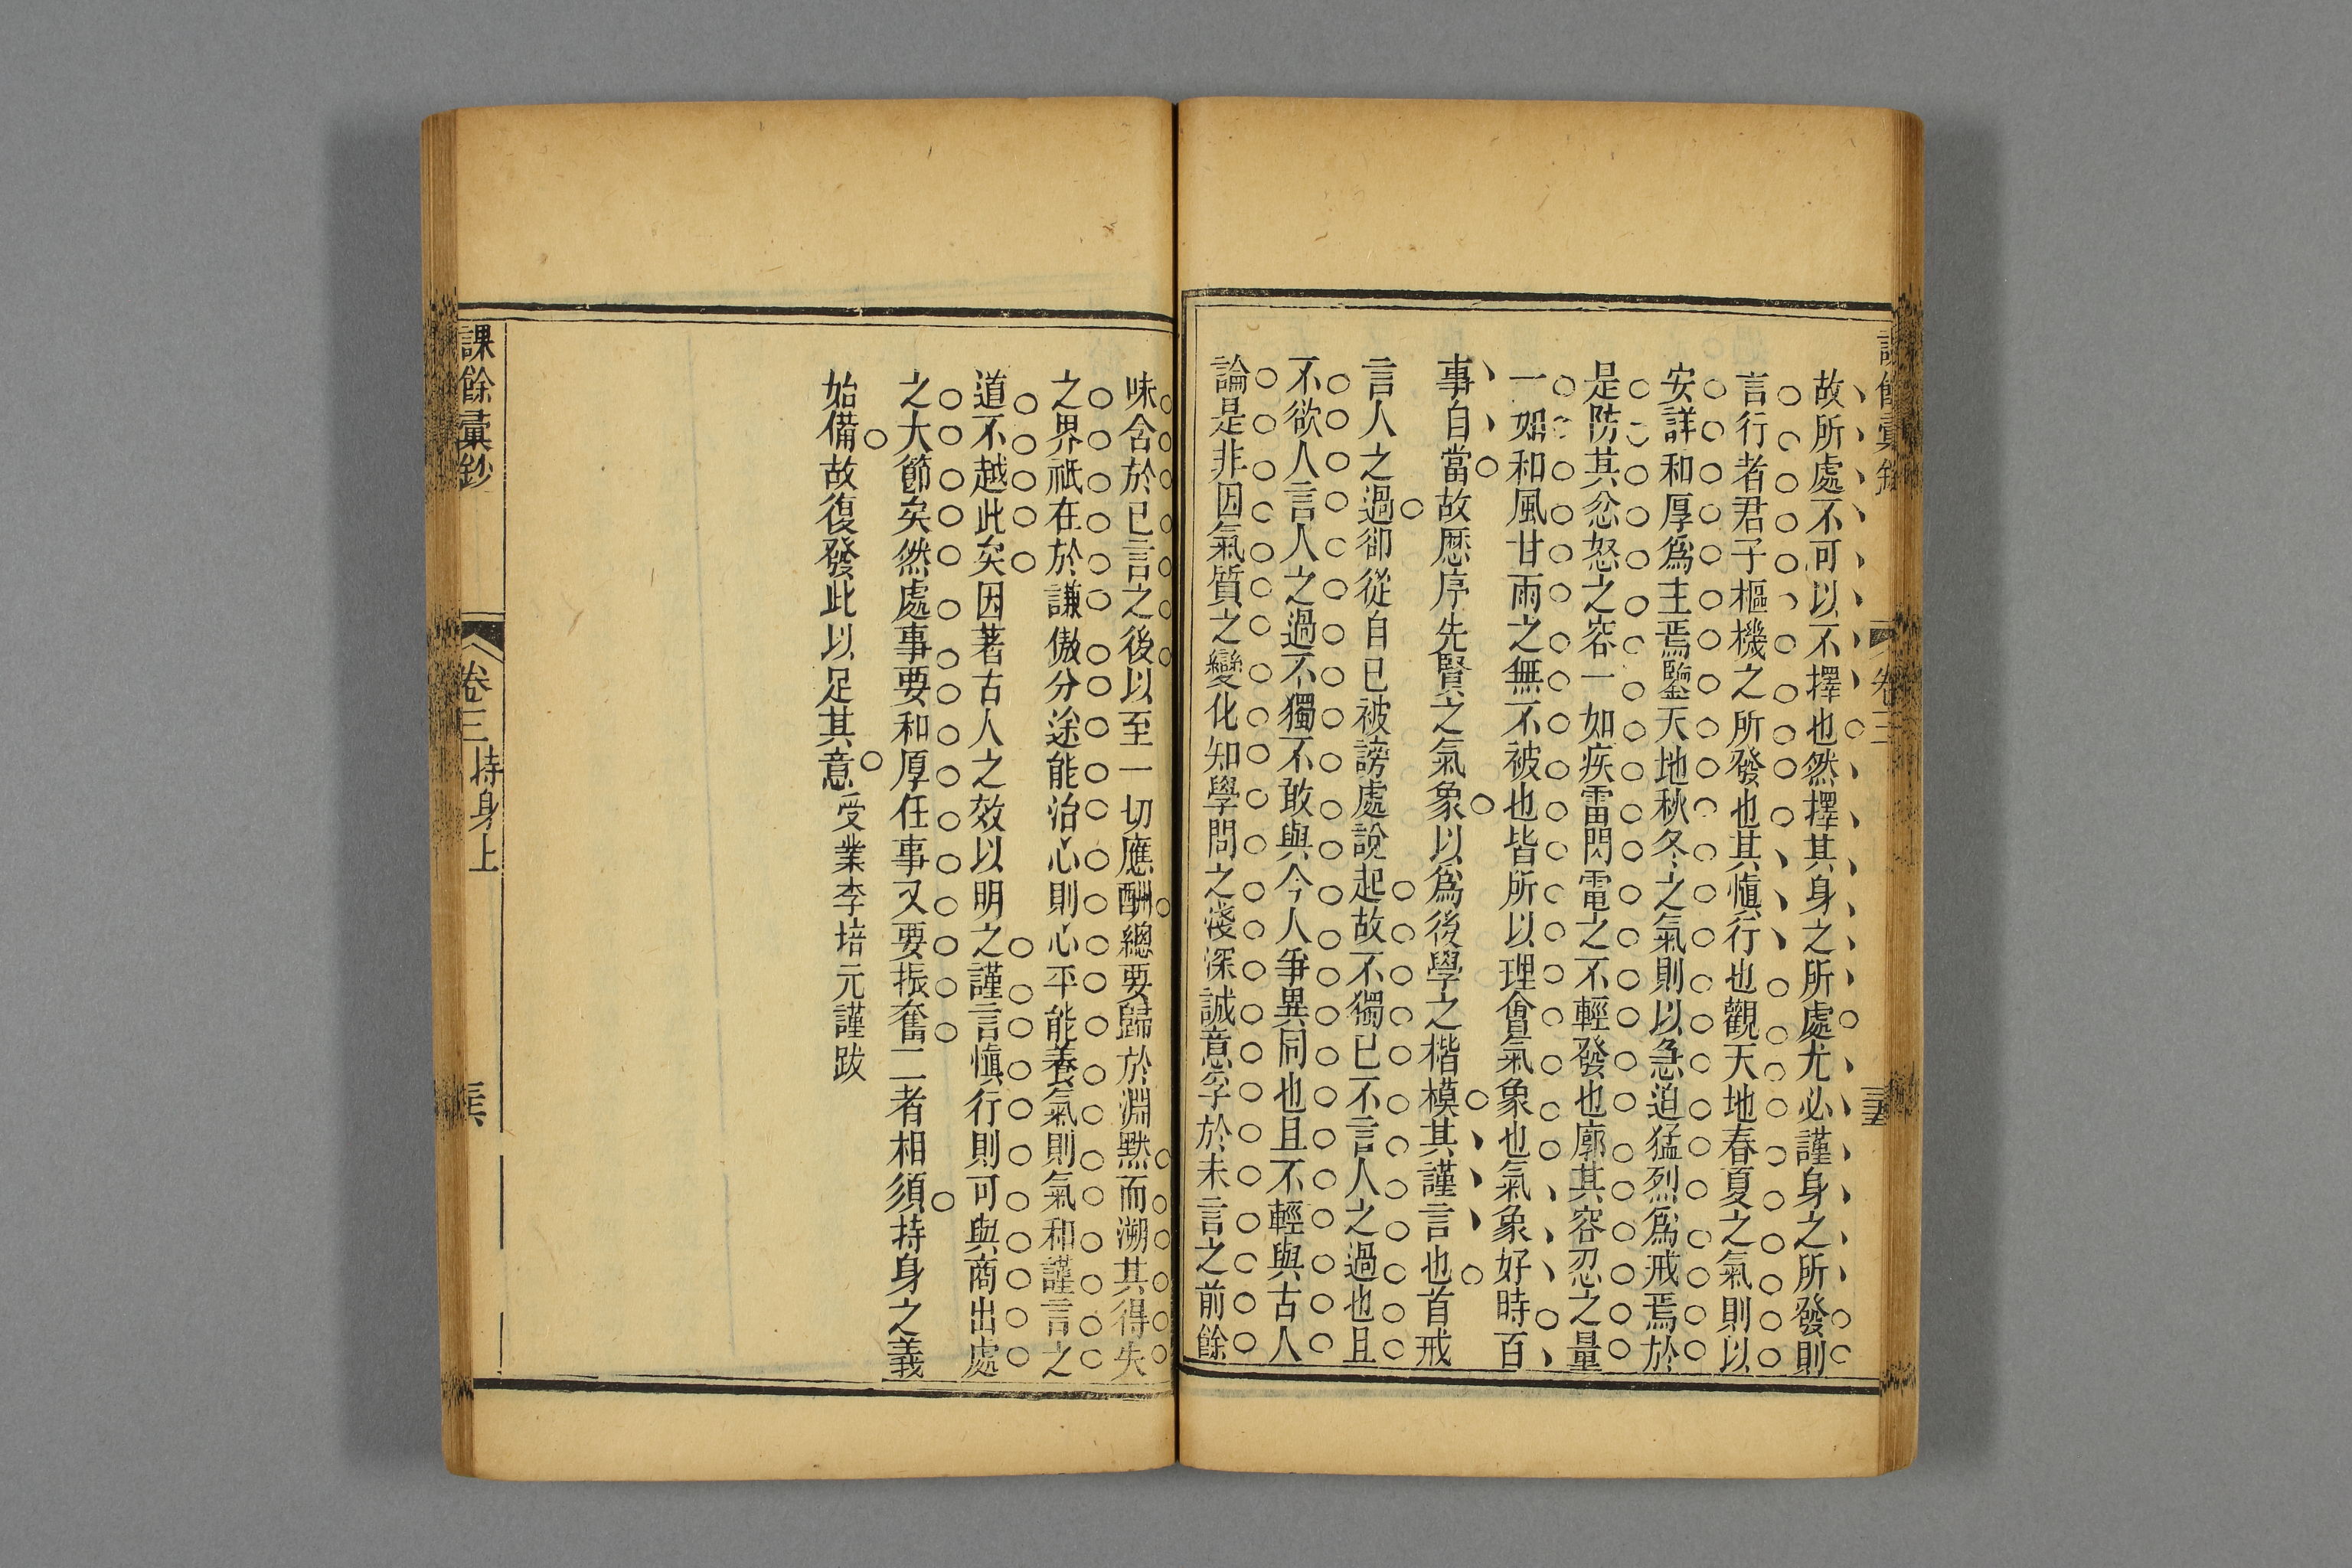 故所處不可以不擇也然擇其身之所處尤必謹身之所發則
言行者君子樞機之所發也其愼行也觀天地春夏之氣則以
安詳和厚爲主焉鑒天地秋冬之氣則以急迫猛烈爲戒焉於
是防其忿怒之容一如疾雷閃電之不輕發也廓其容忍之量
一如和風甘雨之無不被也皆所以理會氣象也氣象好時百
事自當故歷序先賢之氣象以爲後學之楷模其謹言也首戒
言人之過卻從自已被謗處說起故不獨已不言人之過也且
不欲人言人之過不獨不敢與今人爭異同也且不輕與古人
論是非因氣質之變化知學問之淺深誠意孚於未言之前餘
味含於已言之後以至一切應酬總要歸於淵默而溯其得失
之界祇在於謙傲分途能治心則心平能養氣則氣和謹言之
道不越此矣因著古人之效以明之謹言愼行則可與商出處
之大節矣然處事要和厚任事又要振奮二者相須持身之義
始備故復發此以足其意受業李培元謹跋
課餘彙鈔
卷三持身上